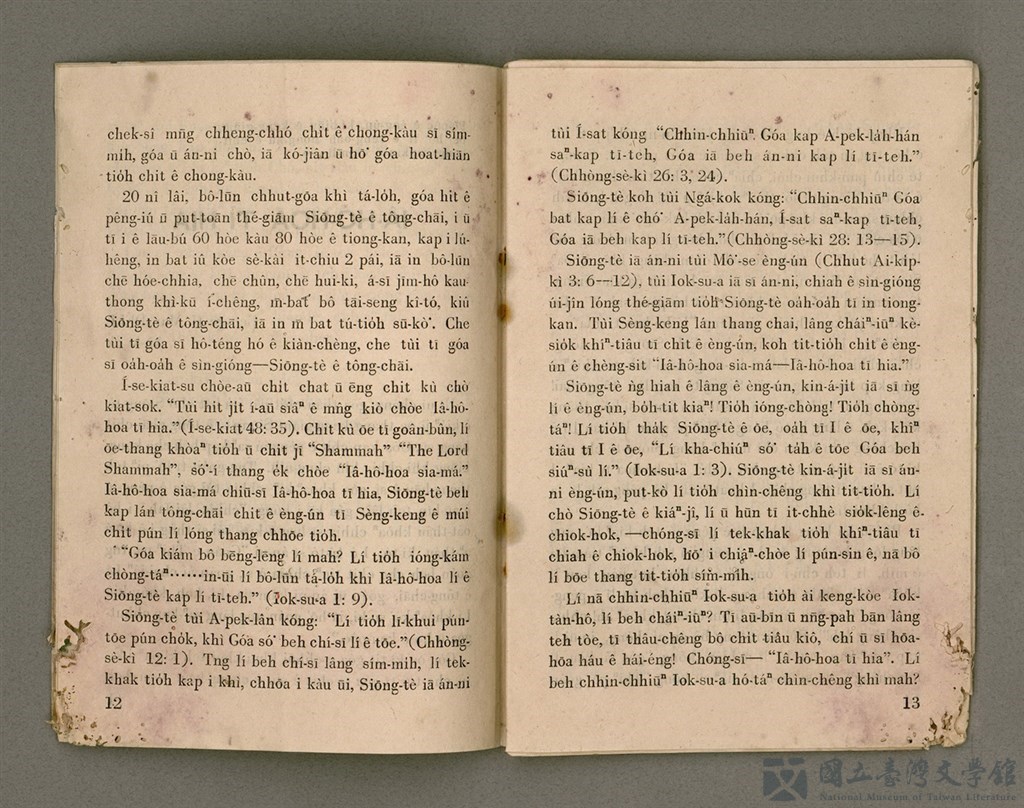 chek-sí mn̄g chheng-chhó chit ê chong-kàu sī sím-
mih, góa ū án-ni chò, iā kó-jiân ū hō͘ góa hoat-hiān
tio̍h chit ê chong-kàu.
20 nî lâi, bô-lūn chhut-gōa khì tá-lo̍h, góa hit ê
pêng-iú ū put-toān thé-giām Siōng-tè ê tông-chāi, i ū
tī i ê lāu-bú 60 hòe kàu 80 hòe ê tiong-kan, kap i lú-
hêng, in bat iû kòe sè-kài it-chiu 2 pái, iā in bô-lūn
chē hóe-chhia, chē chûn, chē hui-ki, á-sī jīm-hô kau-
thong khì-kū í-chêng, m̄-bat bô tāi-seng kî-tó, kiû
Siōng-tè ê tông-chāi, iā in m̄ bat tú-tio̍h sū-kò͘. Che
tùi tī góa sī hô-téng hó ê kiàn-chèng, che tùi tī góa
sī oa̍h-oa̍h ê sìn-gióng—Siōng-tè ê tông-chāi.
Í-se-kiat-su chòe-aū chit chat ū ēng chit kù chò
kiat-sok. “Tùi hit jit í-aū siâⁿ ê mn̂g kiò chòe Iâ-hô-
hoa tī hia.”(Í-se-kiat 48: 35). Chit kù ōe tī goân-bûn, lí
ōe-thang khòaⁿ tio̍h ū chit jī “Shammah” “The Lord
Shammah”, só͘-í thang e̍k chòe “Iâ-hô-hoa sia-má.”
Iâ-hô-hoa sia-má chiū-sī Iâ-hô-hoa tī hia, Siōng-tè beh
kap lán tông-chāi chit ê èng-ún tī Sèng-keng ê múi
chit pún lí lóng thang chhōe tio̍h.
“Góa kiám bô bēng-lēng lí mah? Lí tio̍h ióng-kám
chòng-táⁿ……in-ūi lí bô-lūn tá-lo̍h khì Iâ-hô-hoa lí ê
Siōng-tè kap lí tī-teh.” (Iok-su-a 1: 9).
Siōng-tè tùi A-pek-lân kóng: “Lí tio̍h lī-khui pún-
tōe pún cho̍k, khì Góa só͘ beh chí-sī lí ê tōe.”(Chhòng-
sè-kì 12: 1). Tng lí beh chí-sī lâng sím-mih, lí tek-
khak tio̍h kap i khì, chhōa i kàu ūi, Siōng-tè iā án-ni
12
tùi Í-sat kóng “Chhin-chhiūⁿ Góa kap A-pek-la̍h-hán
saⁿ-kap tī-teh, Góa iā beh án-ni kap lí tī-teh.”
(Chhòng-sè-kì 26: 3, 24).
Siōng-tè koh tùi Ngá-kok kóng: “Chhin-chhiūⁿ Góa
bat kap lí ê chó͘ A-pek-la̍h-hán, Í-sat saⁿ-kap tī-teh,
Góa iā beh kap lí tī-teh.”(Chhòng-sè-kì 28: 13—15).
Siōng-tè iā án-ni tùi Mô͘-se èng-ún (Chhut Ai-ki̍p-
kì 3: 6—12), tùi Iok-su-a iā sī án-ni, chiah ê sìn-gióng
úi-jîn lóng thé-giām tio̍h Siōng-tè oa̍h-oa̍h tī in tiong-
kan. Tùi Sèng-keng lán thang chai, lâng cháiⁿ-iūⁿ kè-
sio̍k khîⁿ-tiâu tī chit ê èng-ún, koh tit-tio̍h chit ê èng-
ún ê chèng-sit “Iâ-hô-hoa sia-má—Iâ-hô-hoa tī hia.”
Siōng-tè n̂g hiah ê lâng ê èng-ún, kin-á-jit iā sī n̂g
lí ê èng-ún, bo̍h-tit kiaⁿ! Tio̍h ióng-chòng! Tio̍h chòng-
táⁿ! Lí tio̍h tha̍k Siōng-tè ê ōe, oa̍h tī I ê ōe, khîⁿ
tiâu tī I ê ōe, “Lí kha-chiúⁿ só͘ ta̍h ê tōe Góa beh
siúⁿ-sù lí.” (Iok-su-a 1: 3). Siōng-tè kin-á-jit iā sī án-
ni èng-ún, put-kò lí tio̍h chìn-chêng khì tit-tio̍h. Lí
chò Siōng-tè ê kiáⁿ-jî, lí ū hūn tī it-chhè sio̍k-lêng ê-
chiok-hok, —chóng-sī lí tek-khak tio̍h khîⁿ-tiâu tī
chiah ê chiok-hok, hō͘ i chiâⁿ-chòe lí pún-sin ê, nā bô
lí bōe thang tit-tio̍h sím-mih.
Lí nā chhin-chhiūⁿ Iok-su-a tio̍h ài keng-kòe Iok-
tàn-hô, lí beh cháiⁿ-iūⁿ? Tī aū-bīn ū nn̄g-pah bān lâng
teh tòe, tī thâu-chêng bô chit tiâu kiô, chí ū sī hōa-
hōa háu ê hái-éng! Chóng-sī— “Iâ-hô-hoa tī hia”. Lí
beh chhin-chhiūⁿ Iok-su-a hó-táⁿ chìn-chêng khì mah?
13
國立臺灣文學館
National Museum of Taiwan Literature